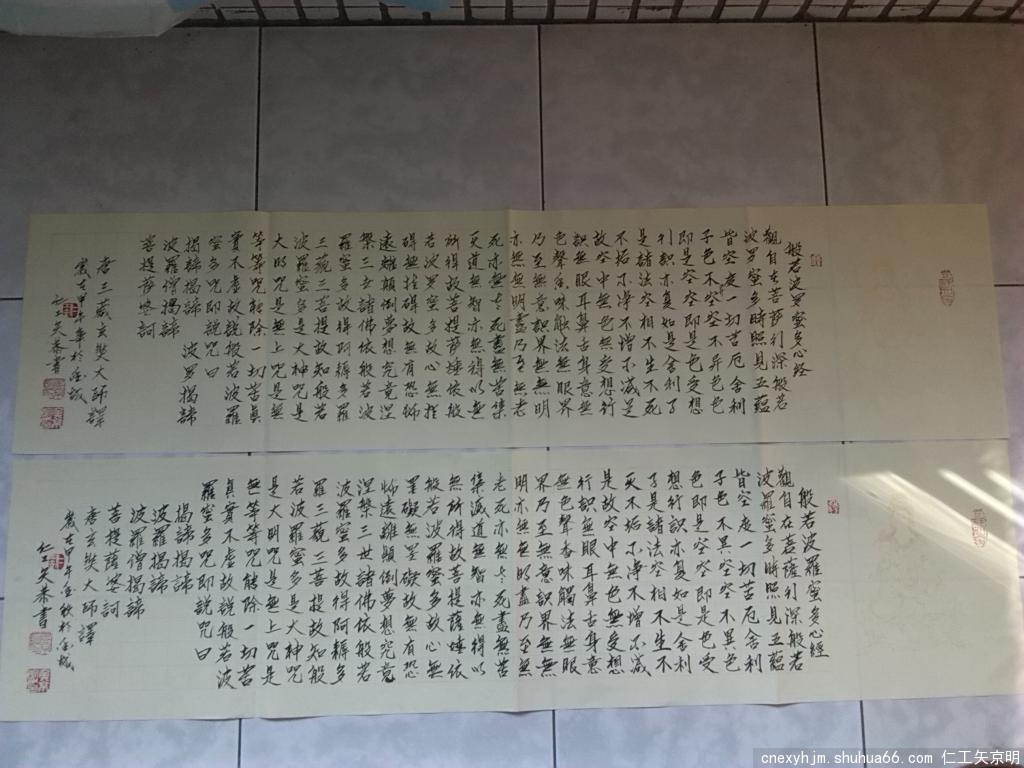 般若波罗蜜多心经
觀自在菩萨行深般若
波罗蜜多時照見五蘊
皆空度一切苦厄舍利
子色不空空不异色色
即是空空即是色受想
行識亦复如是舍利子
是諸法空相不生不死
不垢不净不增不减是
故空中無色無受想行
識無眼耳鼻舌身意無
色聲香味触法無眼界
乃至無意識界無無明
亦無無明盡乃至無老
死亦無老死盡無苦集
灭道無智亦無得以無
所得故菩提萨埵依般
若波罗蜜多故心無挂
碍無挂碍故無有恐怖
遠離顛倒夢想究竟涅
槃三世諸佛依般若波
羅蜜多故得阿耨多羅
三藐三菩提故知般若
波羅蜜多是大神咒是
大明咒是無上咒是無
等等咒能除一切苦真
實不虚故説般若波羅
蜜多咒即説咒曰
揭諦揭諦 波罗揭諦
波羅僧揭諦
菩提萨婆訶
唐三藏玄奘大师譯
歲在甲午年於金城
仁工矢恭書
般若波羅蜜多心經
觀自在菩薩行深般若
波羅蜜多時照見五蘊
皆空度一切苦厄舍利
子色不異空空不異色
色即是空空即是色受
想行識亦复如是舍利
子是諸法空相不生不
灭不垢不净不增不減
是故空中無色無受想
行識無眼耳鼻舌身意
無色聲香味觸法無眼
界乃至無意識界無無
明亦無無明盡乃至無
老死亦無老死盡無苦
集滅道無智亦無得以
無所得故菩提薩埵依
般若波羅蜜多故心無
罣礙無罣礙故無有恐
怖遠離顛倒夢想究竟
涅槃三世諸佛依般若
波羅蜜多故得阿耨多
羅三藐三菩提故知般
若波羅蜜多是大神咒
是大明咒是無上咒是
無等等咒能除一切苦
真實不虛故説般若波
羅蜜多咒即説咒曰
揭諦揭諦
波羅揭諦
波羅僧揭諦
菩提薩婆訶
唐玄奘大師譯
歲在甲午金秋於金城
仁工矢恭書
cnexyhjm.shuhua66.com 仁工矢京明